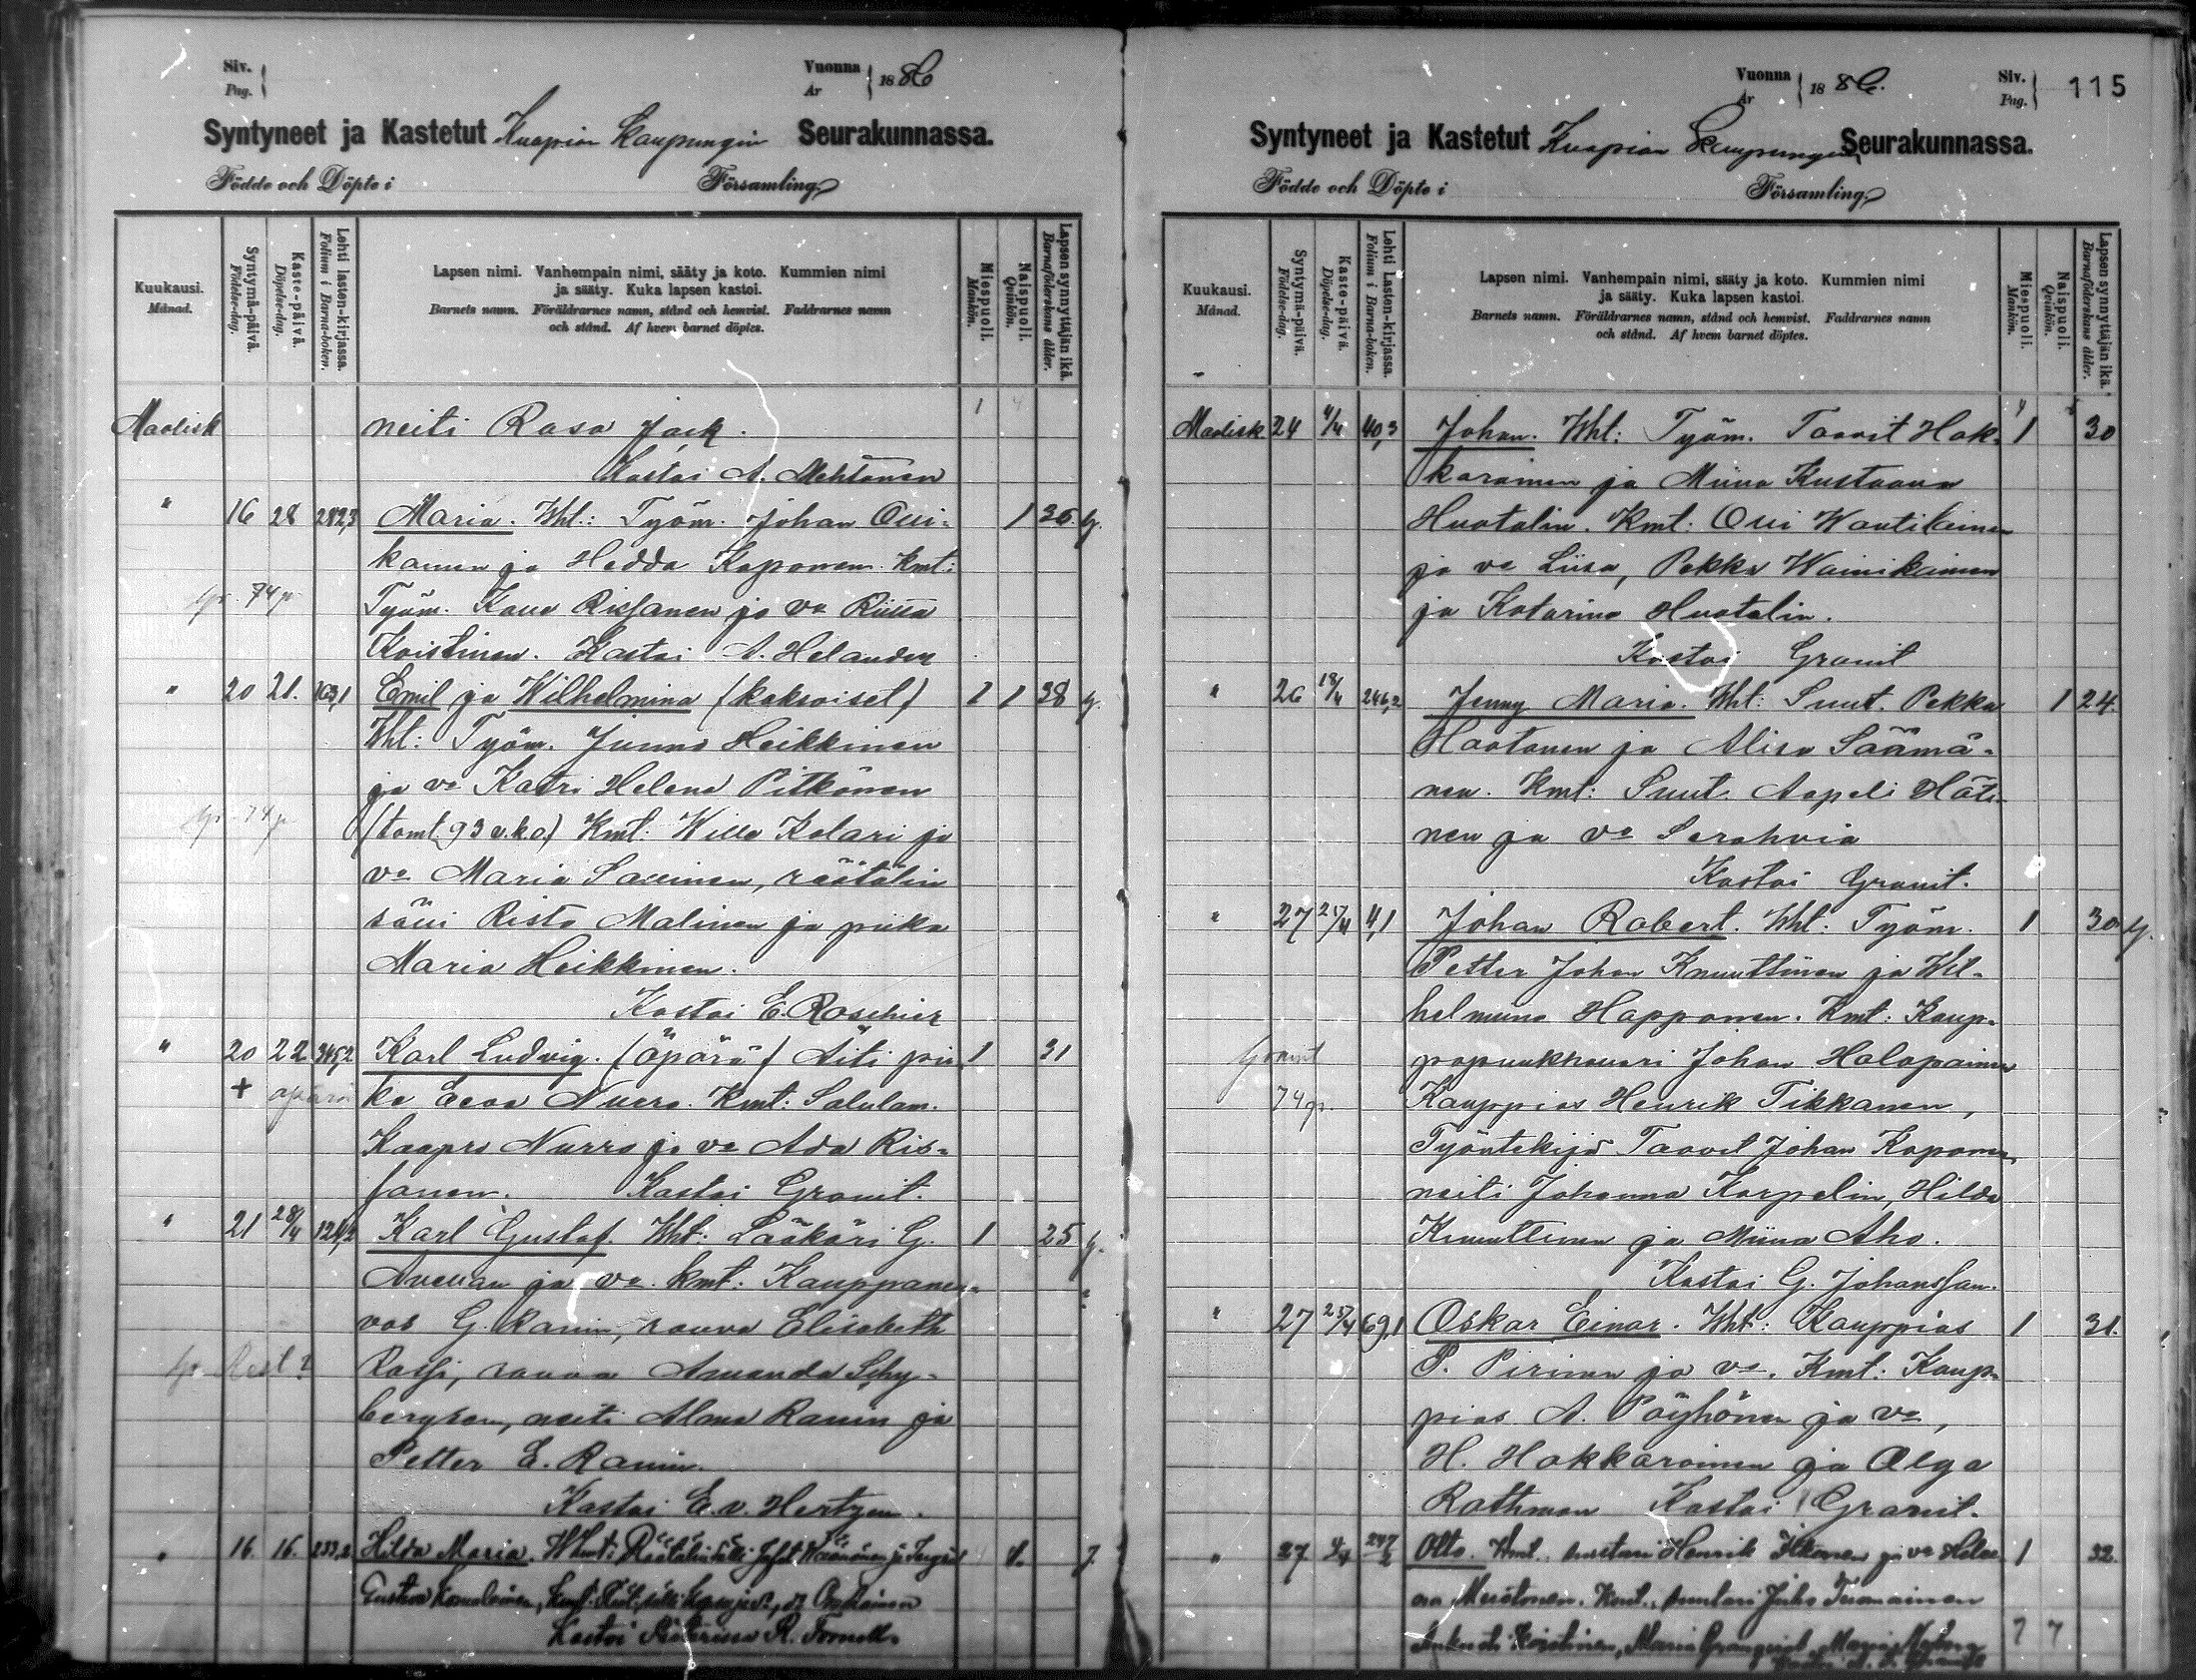 Siv.
Pag.
Vuonna
År
1886
Syntyneet ja Kastetut Kuopion Kaupungin Seurakunnassa.
Födde och Döpte i Församling
Kuukausi.
Månad.
Syntymä-päivä.
Födelse-dag.
Kaste-päivä.
Döpelse-dag.
Lehti lasten-kirjassa.
Folium i Barna-boken.
Lapsen nimi. Vanhempain nimi, sääty ja koto. Kummien nimi
ja sääty. Kuka lapsen kastoi.
Barnets namn. Föräldrarnes namn, stånd och hemvist. Faddrarnes namn
och stånd. Af hvem barnet döptes.
Miespuoli.
Mankön.
Naispuoli.
Qvinkön.
Lapsen synnyttäjän ikä.
Barnaföderskans ålder.
Maalisk neiti Rosa Jack.
Kastoi A. Mehtonen
" 16 28 282,3 Maria. Wht.: Työm. Johan Ovi- 1 36
kainen ja Hedda Koponen. Kmt:
74 Työm. Rissanen ja va Riissa
Koistinen. Kastoi A. Helander
" 20 21. 163,1 Emil ja Wilhelmina (kaksoiset) 1 1 38
Wht: Työm. Junno Heikkinen
ja va Katri Helena Pitkänen
(tomt. 93 v.ka.) Kmt: Wille Kolari ja
va Maria Savinen, räätälin
sälli Risto Malinen ja piika
Maria Heikkinen.
Kastoi E. Roschier
" 20 22 345,2 Karl Ludvig. (äpärä) Äiti pii- 1 31
+ äpärä ka Eeva Nurro. Kmt: Satulam.
Kaapro Nurro ja va Ada Ris-
sanen. Kastoi Granit.
" 21 28/4 121,2 Karl Gustaf. Wht: Lääkäri G. 1 25
Avellan ja va. Kmt: Kauppaneu-
vos G. Ranin, rouva Elisabeth
Rossi, rouva Amanda Schy-
bergson, neiti Alma Ranin ja
Petter E. Ranin.
Kastoi E. v. Hertzen.
" 16. 16. 233,2 Hilda Maria.
Gustava
Kastoi
Vuonna
År
1886.
Siv.
Pag.
115
Syntyneet ja Kastetut Kuopion Kaupungin Seurakunnassa.
Födde och Döpte i Församling
Kuukausi.
Månad.
Syntymä-päivä.
Födelse-dag.
Kaste-päivä.
Döpelse-dag.
Lehti Lasten-kirjassa.
Folium i Barna-boken.
Lapsen nimi. Vanhempain nimi, sääty ja koto. Kummien nimi
ja sääty. Kuka lapsen kastoi.
Barnets namn. Föräldrarnes namn, stånd och hemvist. Faddrarnes namn
och stånd. Af hvem barnet döptes.
Miespuoli.
Mankön.
Naispuoli.
Qvinkön.
Lapsen synnyttäjän ikä.
Barnaföderskans ålder.
Maalisk 24 4/4 40,3 Johan. Wht: Työm. Taavit Hak- 1 30
karainen ja Miina Kustaava
Huotalin. Kmt: Ovi Wautilainen
ja va Liisa, Pekka Wainikainen
ja Katarina Huotalin.
Kastoi Granit
" 26 18/4 246,2 Jenny Maria. Wht: Suut. Pekka 1 24.
Hootonen ja Alisa Säämä-
nen. Kmt: Suut. Aapeli Häti-
nen ja va Serahvia
Kastoi Granit.
" 27 25/4 4,1 Johan Robert. Wht: Työm. 1 30
Petter Johan Knuuttinen ja Wil-
helmina Happonen. Kmt: Kaup-
Johan Holopainen
74 Kauppias Henrik Tikkanen,
Työntekijä Taavit Johan Koponen,
neiti Johanna Karpelin, Hilda
Knuuttinen ja Miina Aho.
Kastoi G. Johansson.
" 27 25/4 69,1 Oskar Einar. Wht: Kauppias 1 31.
P. Pirinen ja va. Kmt: Kaup-
pias A. Pöyhönen ja va,
H. Hakkarainen ja Olga
Rothman Kastoi Granit.
" 27 4/4 Otto. Henrik Ikonen ja va 1 32.
Juho Tuomainen
Koistinen, Maria Granqvist, Maria